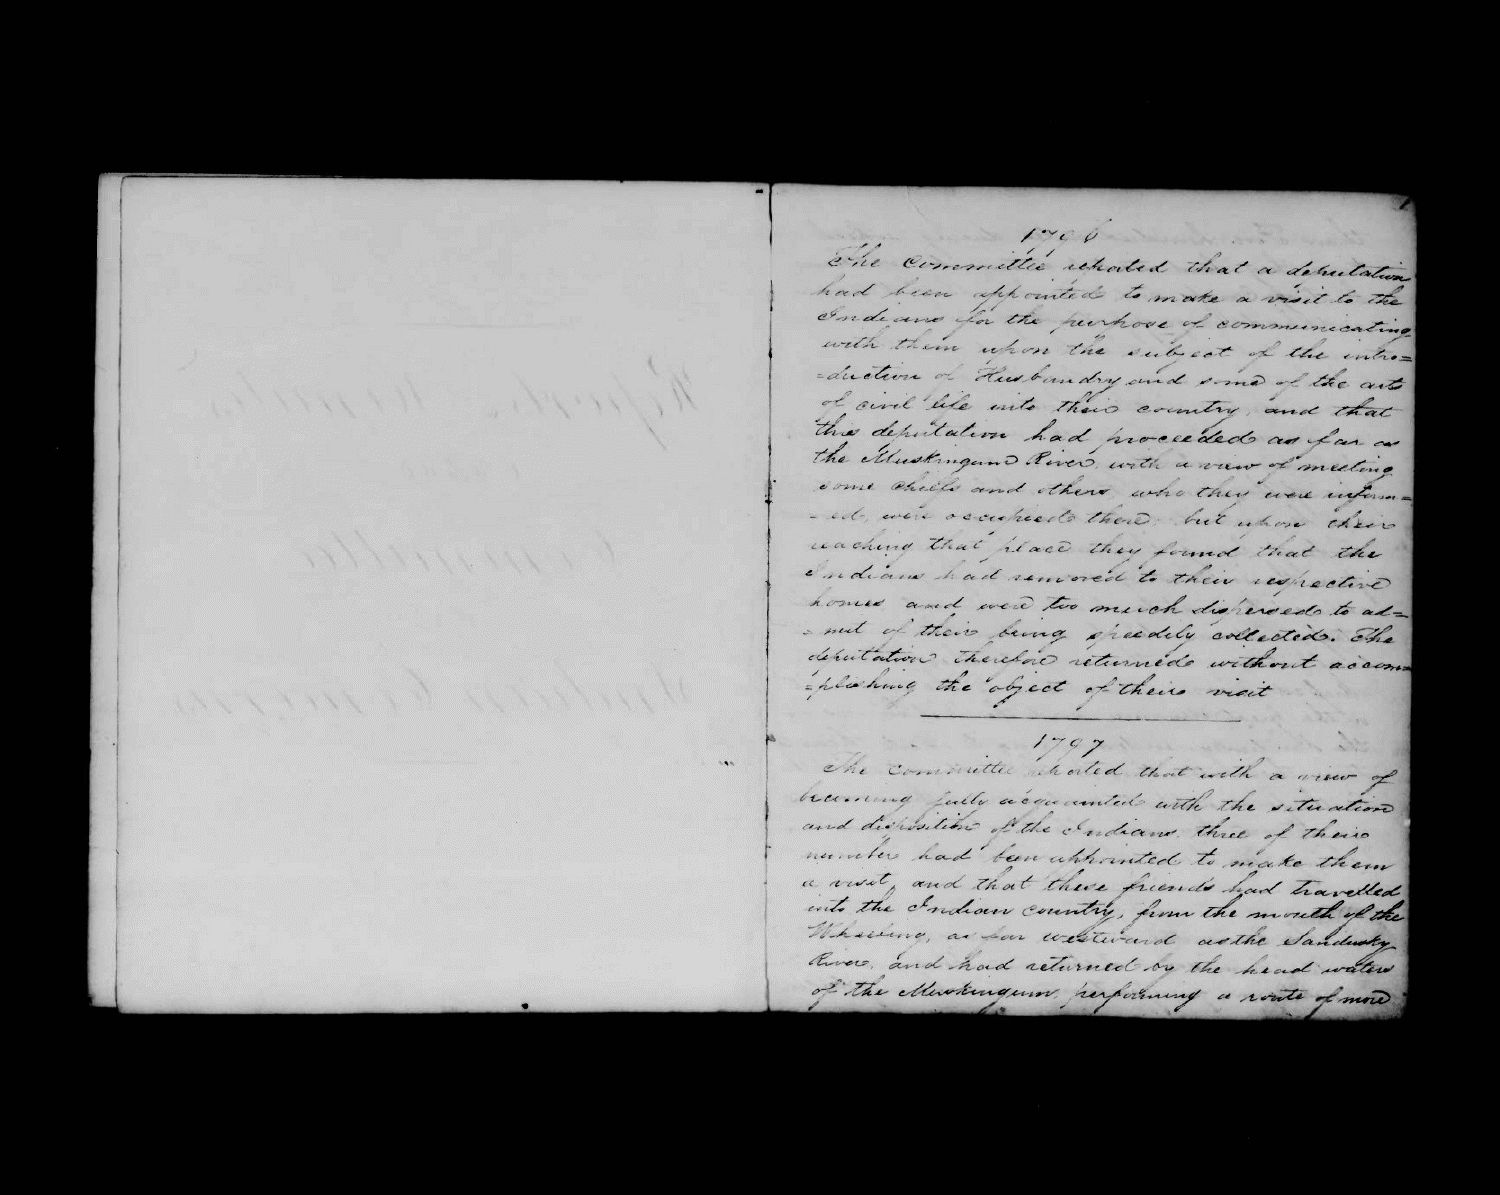 1
1796
The Committee reported that a deputation
had been appointed to make a visit to the
Indians for the purpose of communicating
with them upon the subject of the intro=
=duction of Husbandry and some of the arts
of civil life into their country, and that
this deputation had proceeded as far as
the Muskingum River, with a view of meeting
some chiefs and others, who they were inform=
=ed, were occupied there; but upon their
reaching that place they found that the
Indians had removed to their respective
homes and were too much dispersed to ad=
=mit of their being speedily collected. The
deputation therefore returned without accom=
=plishing the object of their visit
1797
The committee reported that with a view of
becoming fully acquainted with the situation
and disposition of the Indians, three of their
number had been appointed to make them
a visit, and that these friends had travelled
into the Indian country, from the mouth of the
Wheeling, as far westward as the Sandusky
River, and had returned by the head waters
of the Muskingum, performing a route of more